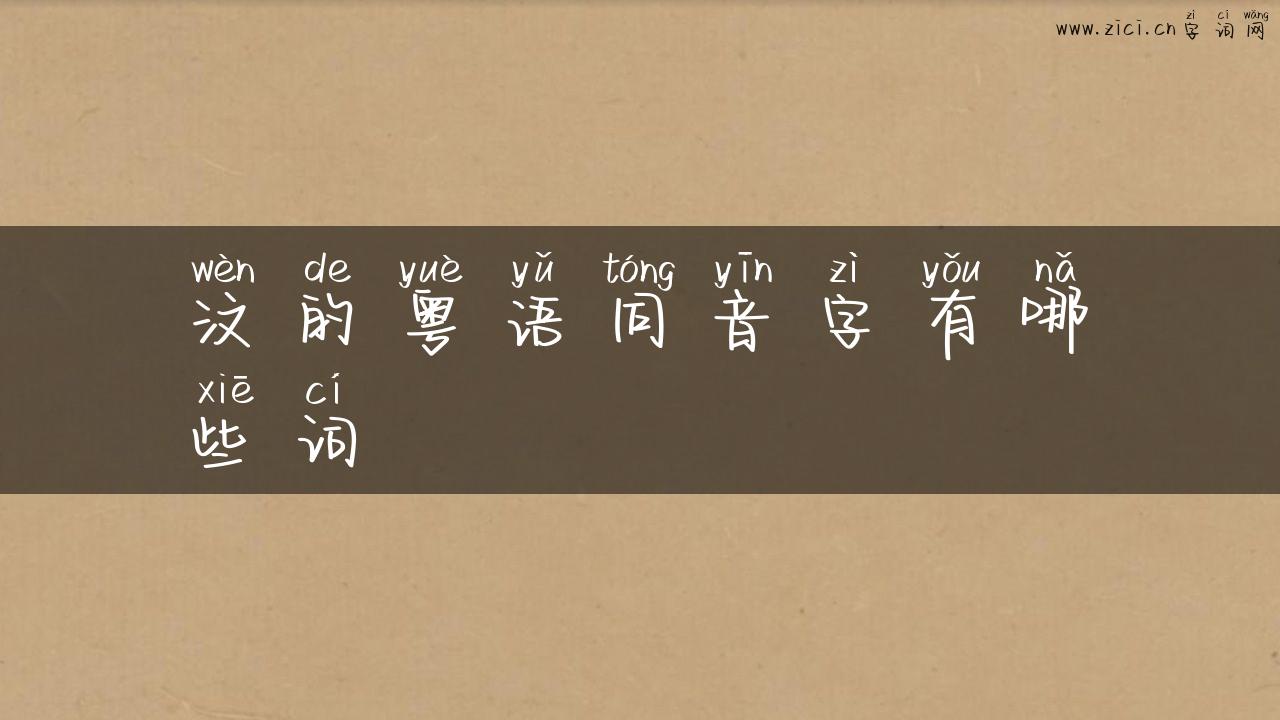 zì cí wǎng
www.zici.cn 字词网
wèn de yuè yǔ tóng yīn zì yǒu nǎ
汶的粤语同音字有哪
xiē cí
些词